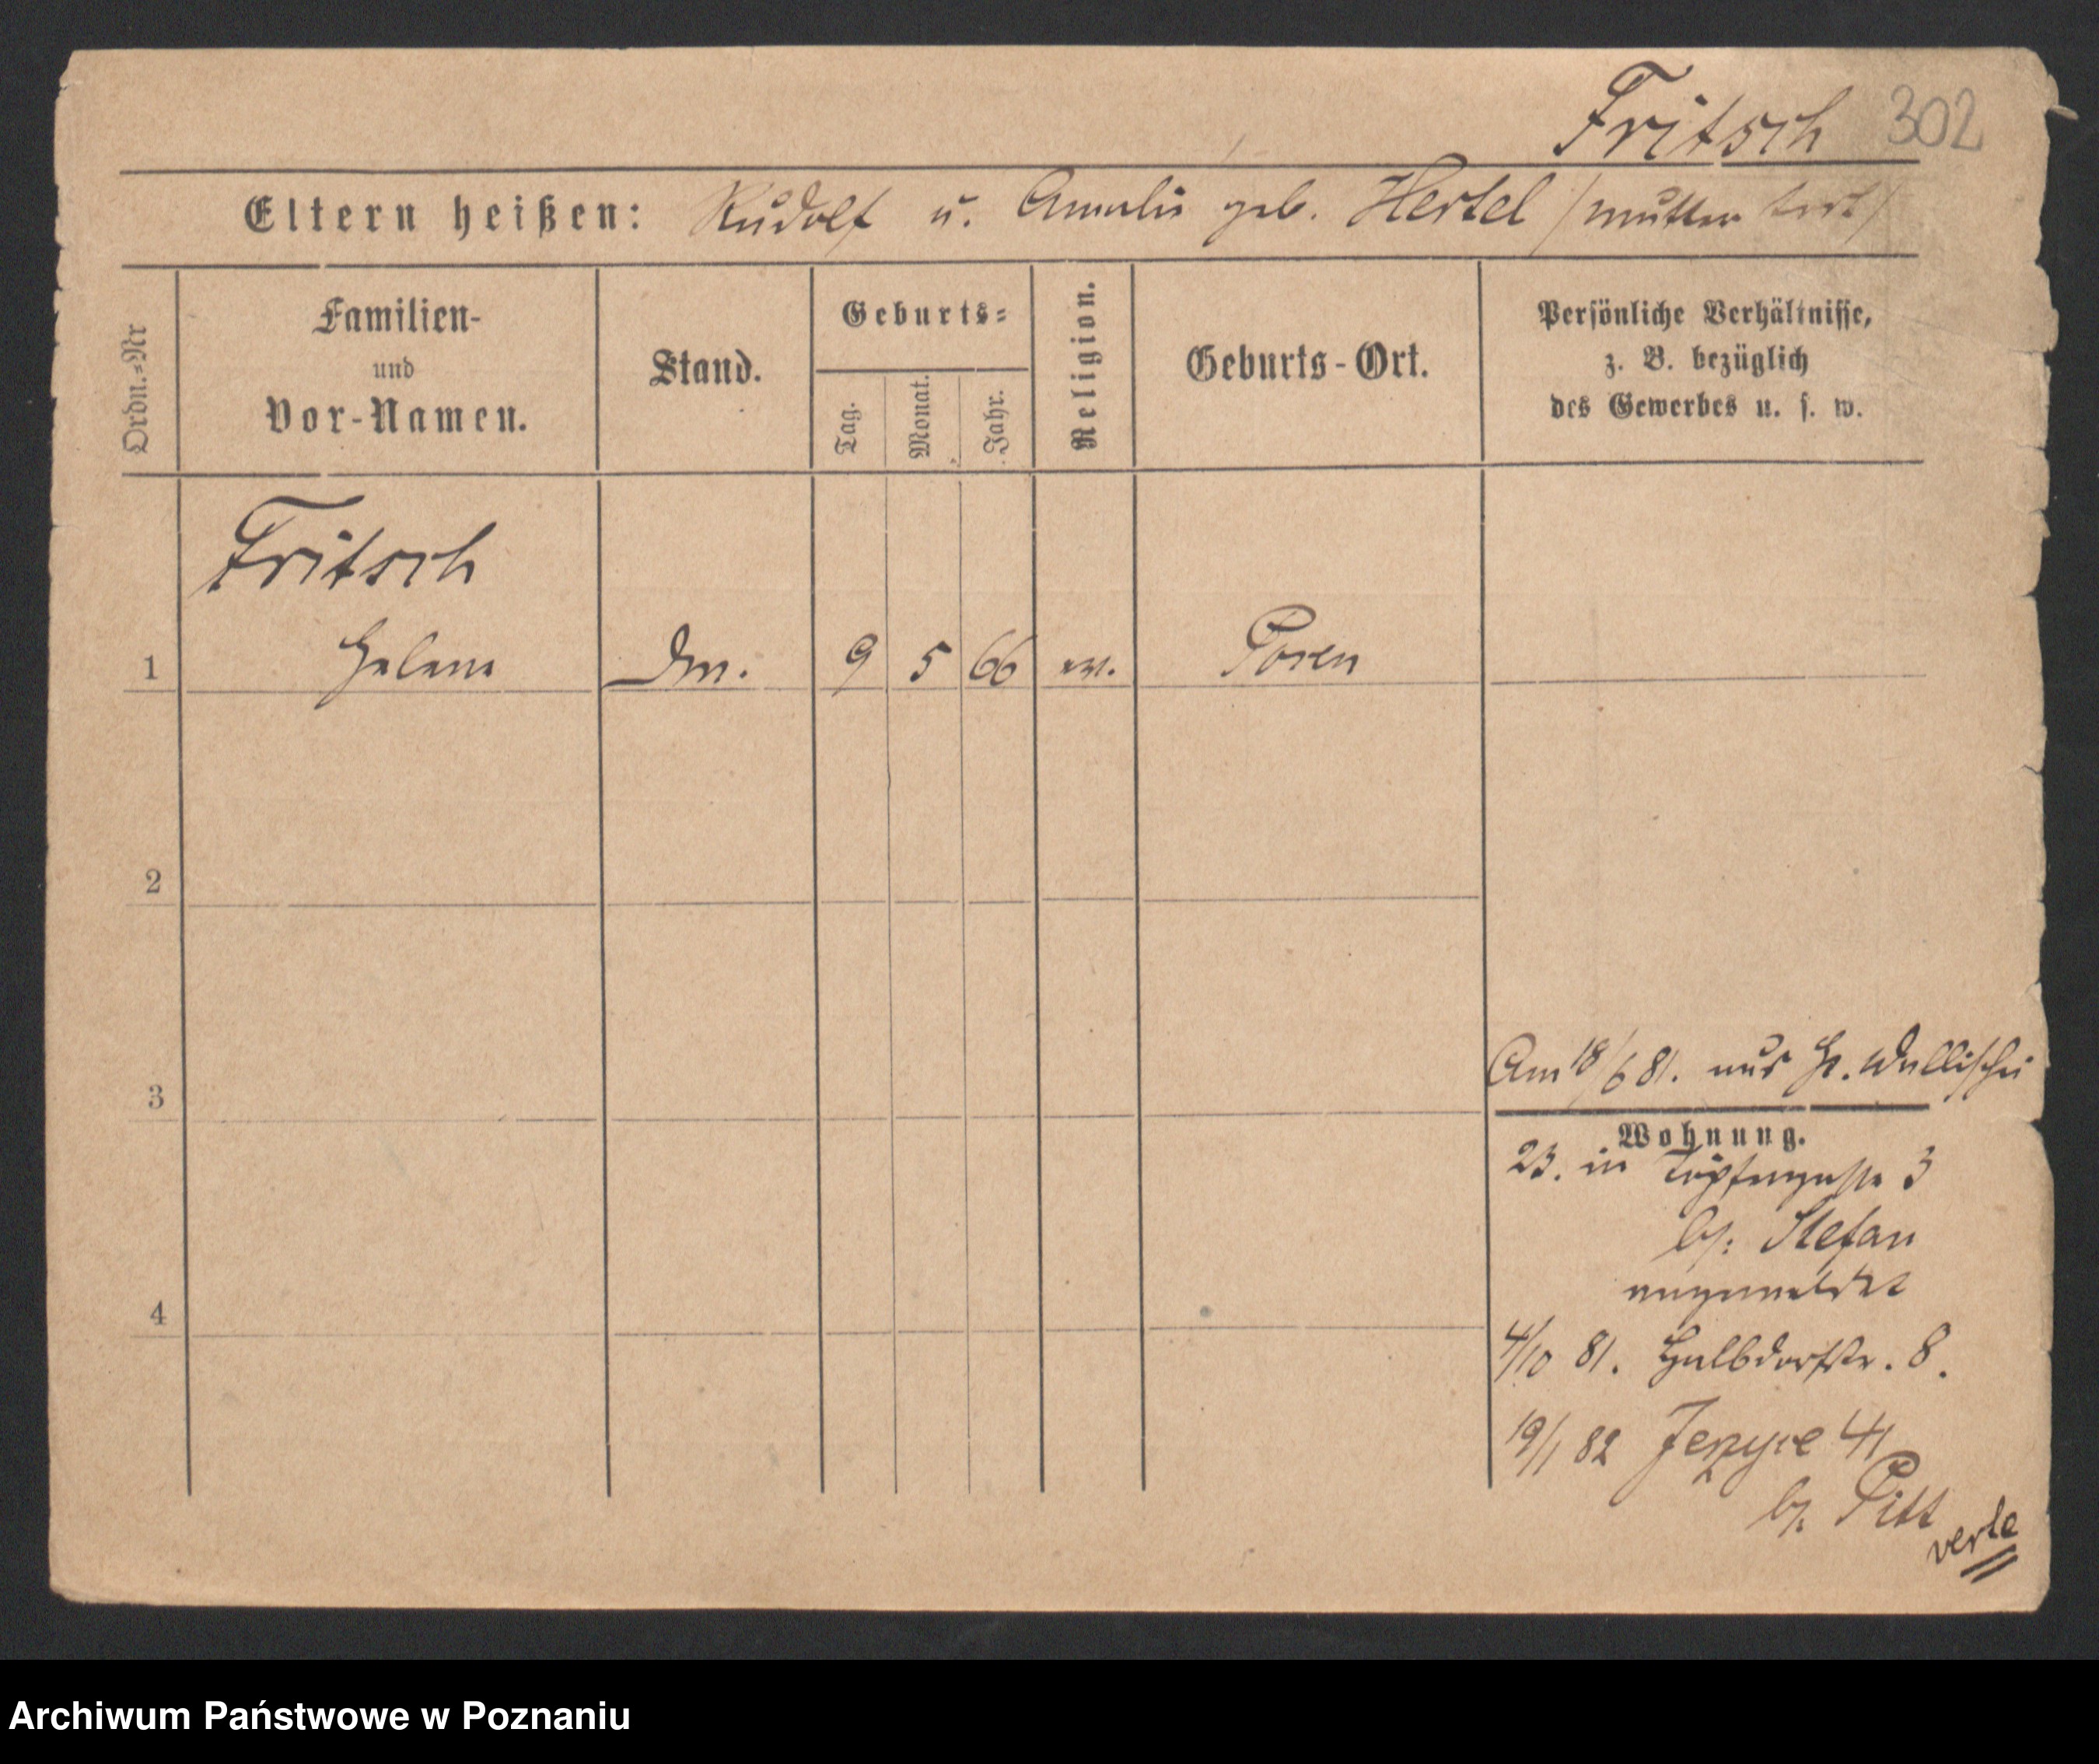 Fritsch 302
Eltern heißen: Rudolf u. Amalie geb. Hertel / Mutter tot /
Ordn.-Nr
Familien-
und
Vor-Namen.
Stand.
Geburts-
Tag.
Monat.
Jahr.
Religion.
Geburts-Ort.
Persönliche Verhältnisse,
z. B. bezüglich
des Gewerbes u. s. w.
Fritsch
1 Helene 9 5 66 ev. Posen
2
3
4
Am 18/6 81. aus Gr.
Wohnung.
23. in Töpfergasse 3
b/: Stefan
angemeldet
4/10 81. Halbdorfstr. 8.
19/1 82 Jerzyce 41
b/: Pitt
verte
Archiwum Państwowe w Poznaniu